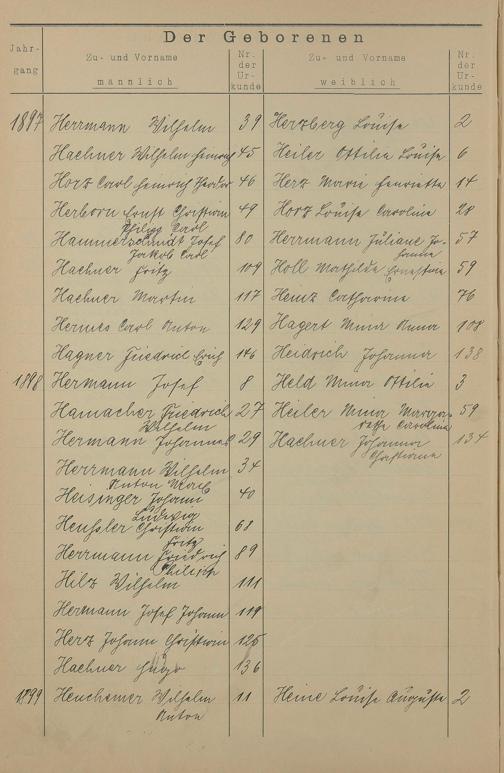 Der Geborenen
Jahr-
gang
Zu- und Vorname
männlich
Nr.
der
Ur-
kunde
Zu- und Vorname
weiblich
Nr.
der
Ur-
kunde
1897 Herrmann Wilhelm 39 Herzberg Louise 2
Haehner Wilhelm Heinrich 45 Heiler Ottilie Louise 6
Horz Carl Heinrich Theodor 46 Herz Marie Henriette 14
Herborn Ernst Christian 49 Horz Louise Caroline 28
Philipp Carl
Hammerschmidt Josef 80 Herrmann Juliane Jo- 57
Jakob Carl hanna
Haehner Fritz 109 Holl Mathilde Ernestine 59
Haehner Martin 117 Heinz Catharine 76
Hermes Carl Anton 129 Hagert Mina Anna 108
Hagner Friedrich Erich 146 Heidrich Johanna 138
1898 Hermann Josef 8 Held Mina Ottilie 3
Hamacher Friedrich 27 Heiler Mina Marga- 59
Wilhelm rethe Caroline
Hermann Johannes 29 Haehner Johanna 134
Christiane
Herrmann Wilhelm 34
Anton
Heisinger Johann 40
Ludwig
Heussler Christian 68
Fritz
Herrmann Friedrich 89
Philipp
Hilz Wilhelm 111
Hermann Josef Johann 119
Herz Johann Christian 126
Haehner Hugo 136
1899 Henchemer Wilhelm 11 Heine Louise Auguste 2
Anton